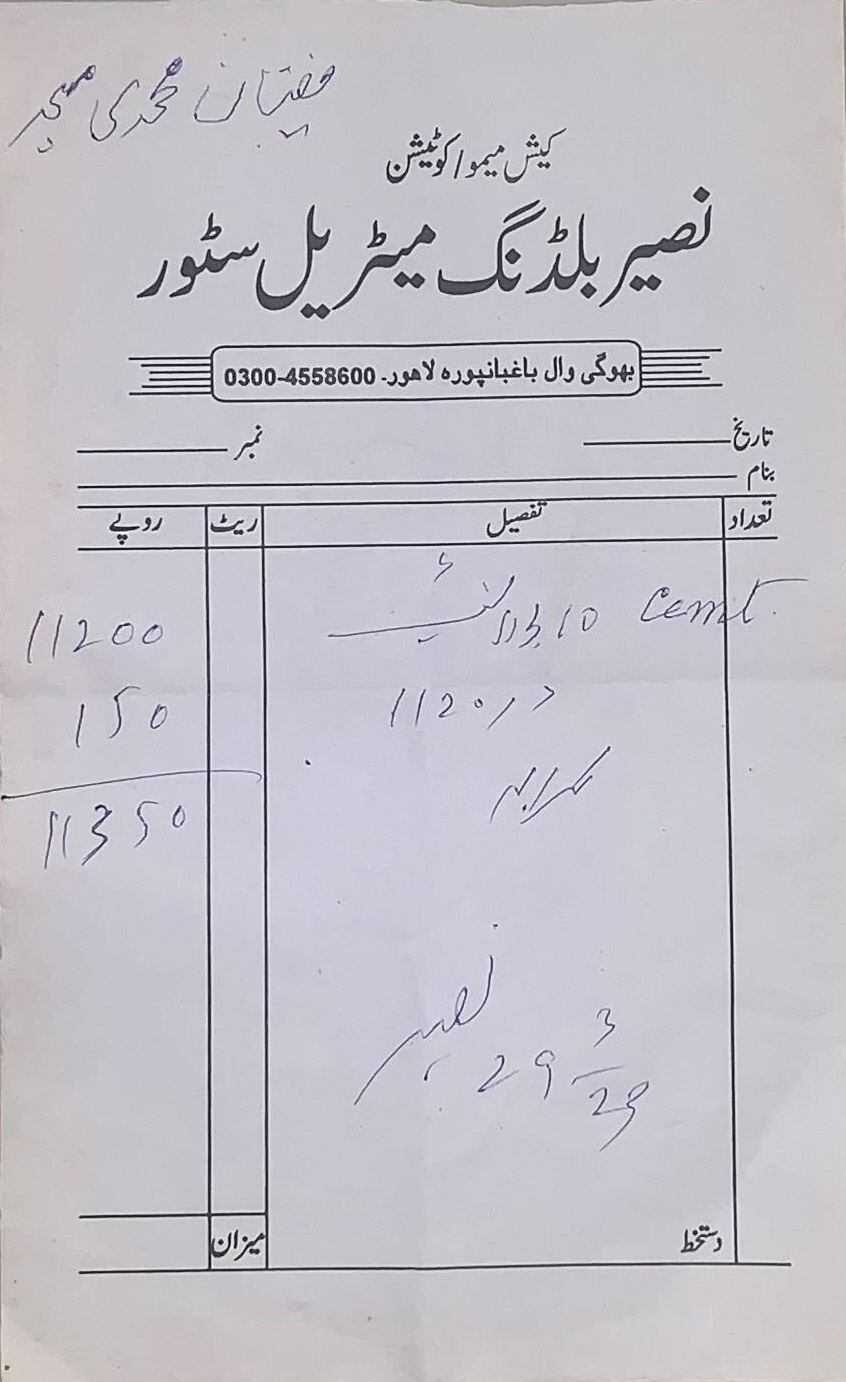 فیضان محمدی مسجد
کیش میمو / کوٹیشن
نصیر بلڈنگ میٹریل سٹور
بھوگی وال باغبانپورہ لاھور۔ 0300-4558600
تاریخ نمبر
بنام
تعداد تفصیل ریٹ روپے
Cemt. 10 11200
در 1120 150
کرایہ
11350
نصیر
29 3/23
دستخط میزان